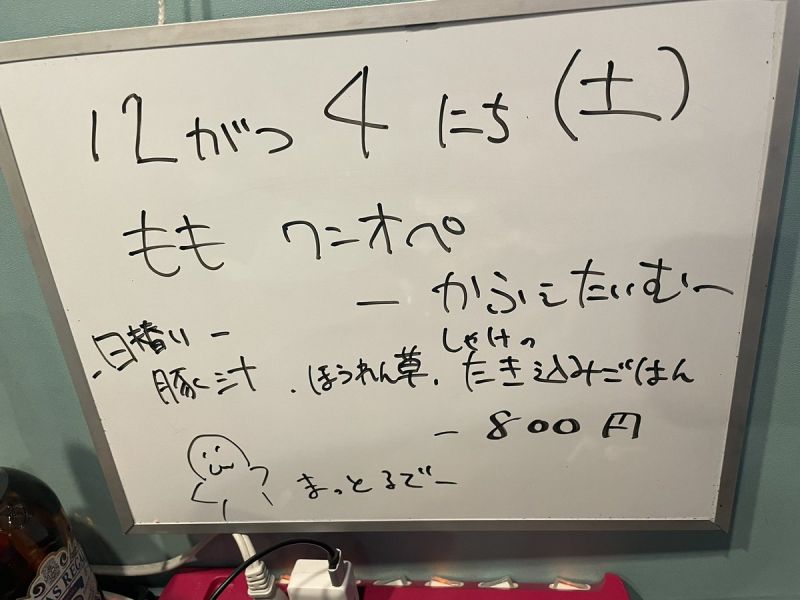 12がつ4にち(土)
もも ワニオペ
ー かふぇたいむー
・日替りー
しゃけの
豚汁 ・ほうれん草・たき込みごはん
ー 800円
まっとるでー